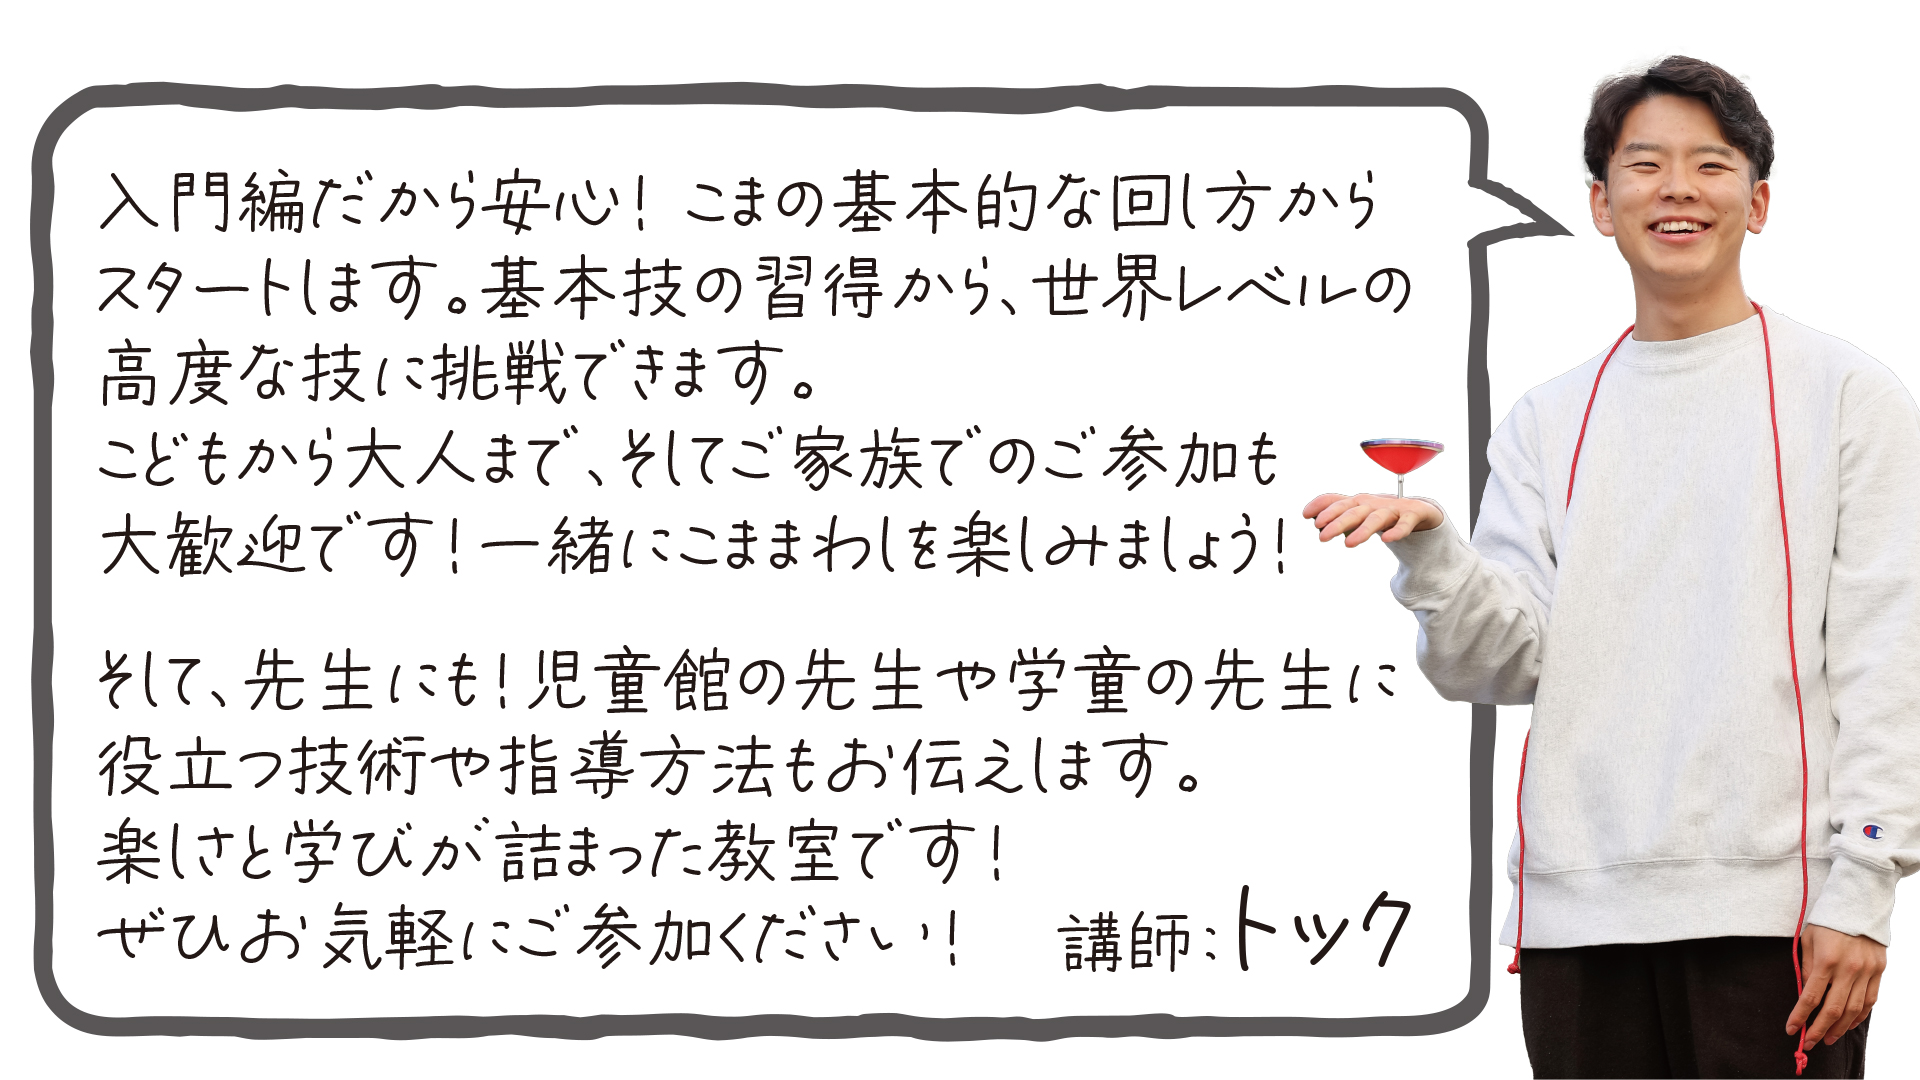 入門編だから安心！ こまの基本的な回し方から
スタートします。基本技の習得から、世界レベルの
高度な技に挑戦できます。
こどもから大人まで、そしてご家族でのご参加も
大歓迎です！一緒にこままわしを楽しみましょう！
そして、先生にも！児童館の先生や学童の先生に
役立つ技術や指導方法もお伝えします。
楽しさと学びが詰まった教室です！
ぜひお気軽にご参加ください！
講師：トック